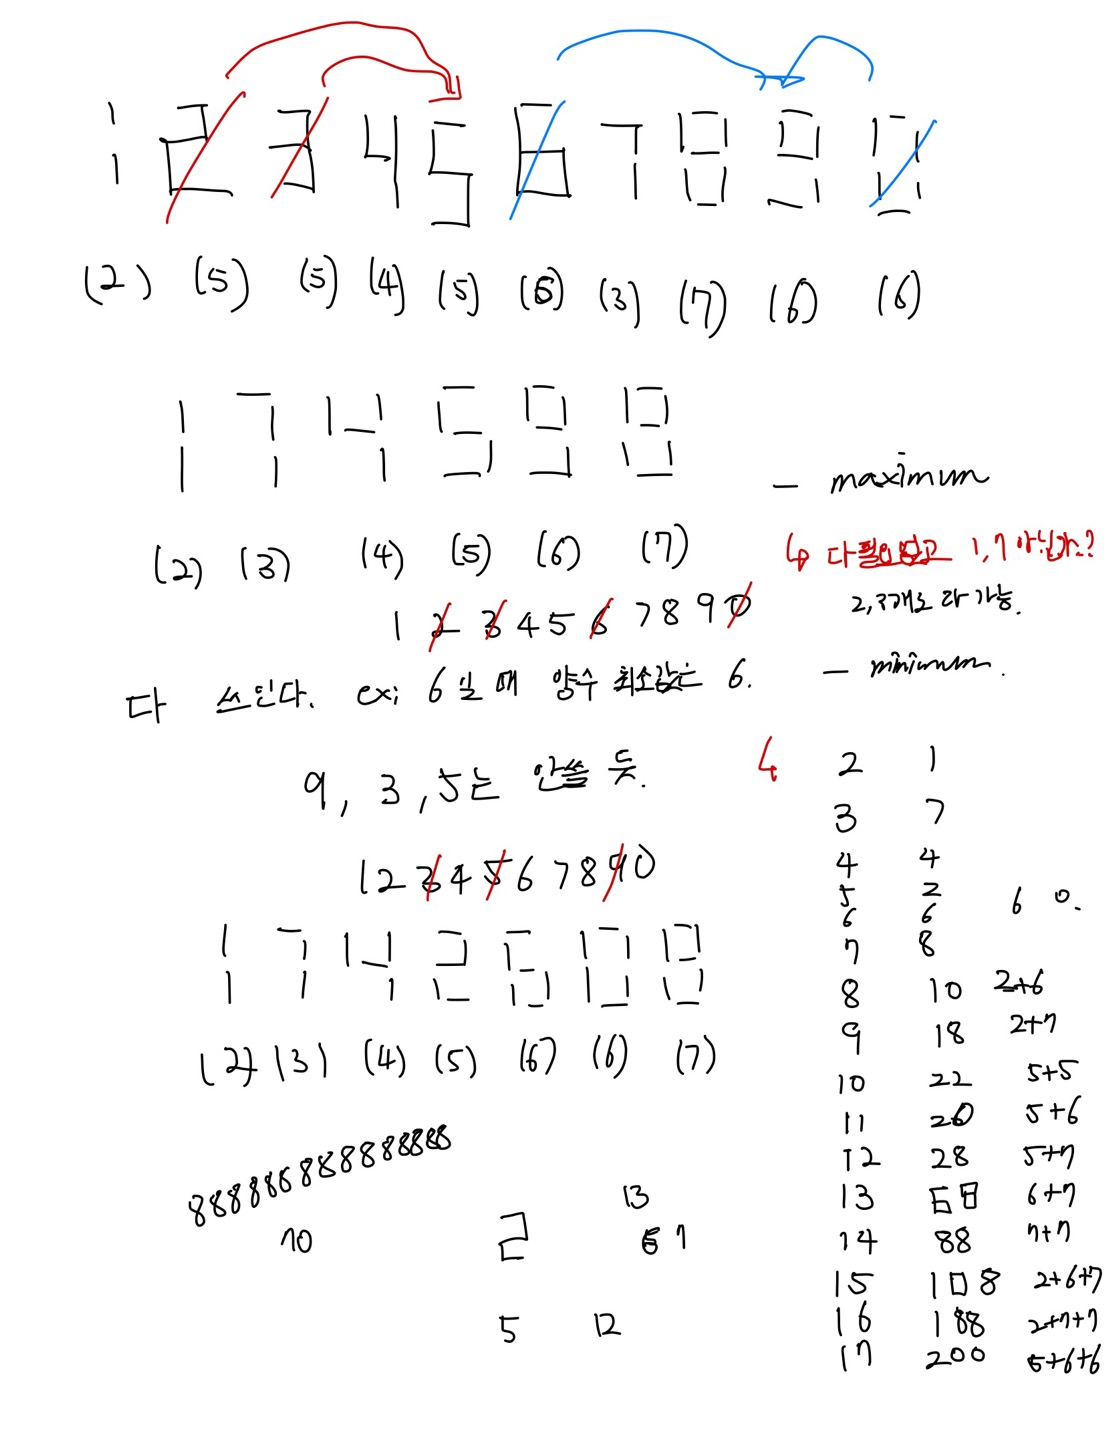 1 2 3 4 5 6 7 8 9 0
(2) (5) (5) (4) (5) (6) (3) (7) (6) (6)
1 7 4 5 9 8
(2) (3) (4) (5) (6) (7)
- maximum
↳ 다필요없고 1,7 아닌가..?
2,3개로 다 가능.
1 2 3 4 5 6 7 8 9 0
다 쓰인다. ex; 6일 때 양수 최소값은 6.
- minimum.
9, 3, 5는 안쓸 듯.
1 2 3 4 5 6 7 8 9 0
1 7 4 2 6 0 8
(2) (3) (4) (5) (6) (6) (7)
2 1
3 7
4 4
5 2
6 6 6 0.
7 8
8 10 2+6
9 18 2+7
10 22 5+5
11 20 5+6
12 28 5+7
13 68 6+7
14 88 7+7
15 108 2+6+7
16 188 2+7+7
17 200 5+6+6
70
2
13
6 7
5 12